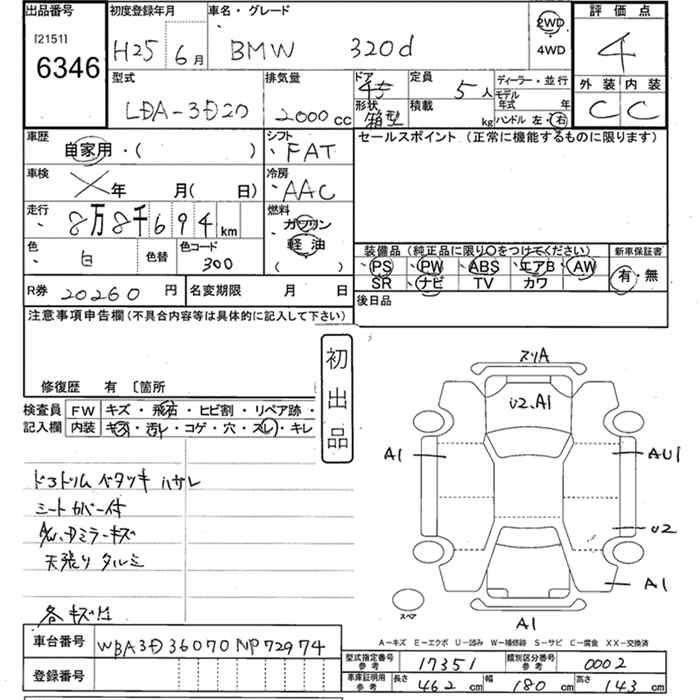 出品番号
[2151]
6346
初度登録年月
H25 6月
車名・グレード
BMW 320d
2WD
4WD
評価点
4
外装 内装
C C
型式
LDA-3D20
排気量
2000cc
ドア
形状
箱型
定員
5人
積載
kg
ディーラー・並行
モデル
年式 年
ハンドル 左・右
車歴
自家用・( )
シフト
FAT
セールスポイント(正常に機能するものに限ります)
車検
年 月( 日)
冷房
AAC
走行
8万8千694km
燃料
ガソリン
軽油
( )
色
白
色替
色コード
300
装備品(純正品に限り○をつけてください)
PS PW ABS エアB AW
SR ナビ TV カワ
新車保証書
有・無
R券 20260円
名変期限 月 日
後日品
注意事項申告欄(不具合内容等は具体的に記入して下さい)
修復歴 有 〔箇所
初出品
検査員
記入欄
FW キズ・飛石・ヒビ割・リペア跡・
内装 キズ・汚レ・コゲ・穴・スレ・キレ
ドラトリム ベタツキ ハガレ
シートカバー付
AW・Dミラーキズ
天張り タルミ
各キズ凹
スリA
U2、A1
A1
AU1
U2
A1
スペア
A1
A-キズ E-エクボ U-凹み W-補修跡 S-サビ C-腐食 XX-交換済
車台番号 WBA3D36070NP72974
登録番号
型式指定番号
参考
17351
類別区分番号
参考
0002
車庫証明用
参考
長さ 462cm
幅 180cm
高さ 143cm